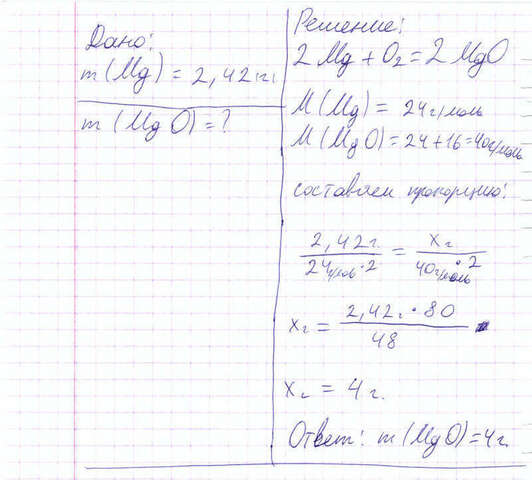 Дано:
m (Mg) = 2,42 г.
m (MgO) = ?
Решение:
2 Mg + O₂ = 2 MgO
M (Mg) = 24 г/моль
M (MgO) = 24 + 16 = 40 г/моль
составляем пропорцию:
2,42 г. / 24 г/моль · 2 = x г / 40 г/моль · 2
x г = 2,42 г · 80 / 48
x г = 4 г.
Ответ: m (MgO) = 4 г.